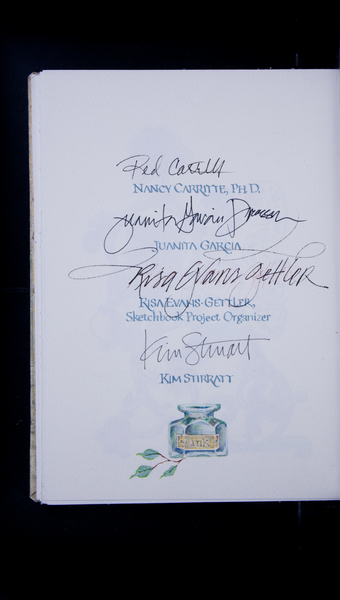 NANCY CARRITTE, PH.D.
Juanita Garcia
JUANITA GARCIA
Risa Evans Gettler
RISA EVANS-GETTLER,
Sketchbook Project Organizer
Kim Stirratt
KIM STIRRATT
ink